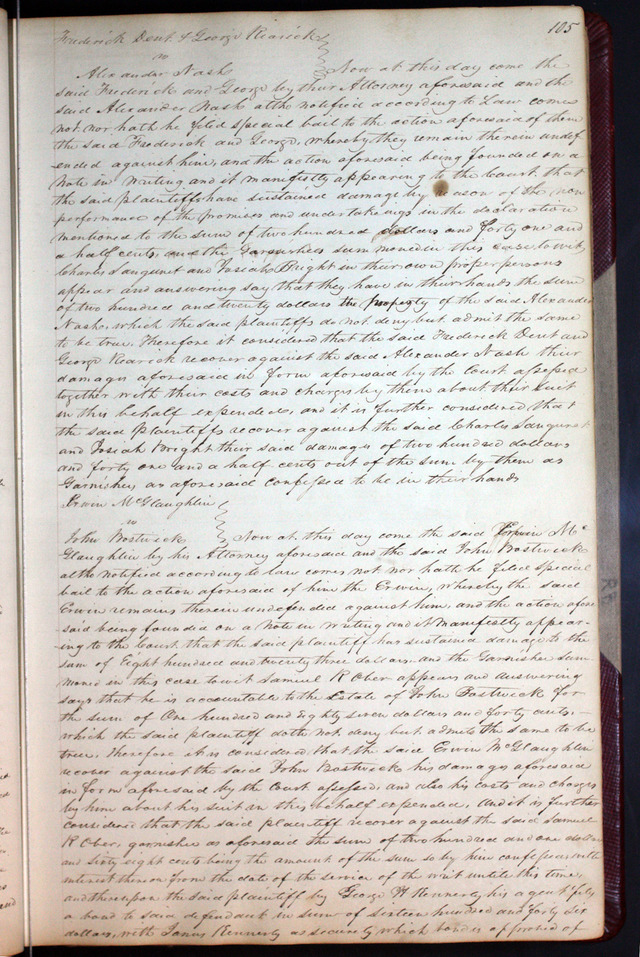 105
Frederick Dent & George Rearick
vs
Alexander Nash Now at this day come the
said Frederick and George by their Attorney aforesaid and the
said Alexander Nash altho notified according to Law comes
not nor hath he filed special bail to the action aforesaid of them
the said Frederick and George, whereby they remain therein undef
ended against him, and the action aforesaid being founded on a
Note in writing and it manifestly appearing to the Court that
the said plaintiffs have sustained damage by reason of the non
performance of the promises and undertakings in the declaration
mentioned to the sum of two hundred dollars and forty one and
a half cents, and the Garnishees summoned in this case to wit,
Charles Sanguinet and Josiah Bright in their own proper persons
appear and answering say that they have in their hands the sum
of two hundred and twenty dollars the property of the said Alexander
Nash, which the said plaintiffs do not deny but admit the same
to be true. Therefore it considered that the said Frederick Dent and
George Rearick recover against the said Alexander Nash their
damages aforesaid in form aforesaid by the Court assessed
together with their costs and charges by them about their suit
in this behalf expended, and it is further considered that
the said Plaintiffs recover against the said Charles Sanguinet
and Josiah Bright their said damages of two hundred dollars
and forty one and a half cents out of the sum by them as
Garnishees as aforesaid confessed to be in their hands
Erwin McGlaughlin
vs
John Bostwick Now at this day come the said Erwin Mc
Glaughlin by his Attorney aforesaid and the said John Bostwick
altho notified according to law comes not nor hath he filed special
bail to the action aforesaid of him the Erwin, whereby the said
Erwin remains therein undefended against him, and the action afore
said being founded on a Note in writing and it manifestly appear-
ing to the Court that the said plaintiff has sustained damage to the
sum of Eight hundred and twenty three dollars and the Garnishee sum-
moned in this case to wit Samuel R Ober appears and answering
says that he is accountable to the Estate of John Bostwick for
the sum of One hundred and eighty seven dollars and forty cents,-
which the said plaintiff doth not deny but admits the same to be
true. Therefore it is considered that the said Erwin McGlaughlin
recover against the said John Bostwick his damages aforesaid
in form aforesaid by the Court assessed, and also his costs and charges
by him about his suit in this behalf expended. And it is further
considered that the said plaintiff recover against the said Samuel
R Ober, garnishee as aforesaid the sum of two hundred and one dollars
and sixty eight cents being the amount of the sum so by him confessed with
interest thereon from the date of the service of the writ untill this time,
and thereupon the said plaintiff by George H Kennerly his agent files
a bond to said defendant in sum of sixteen hundred and forty six
dollars, with James Kennerly as security which bond is approved of